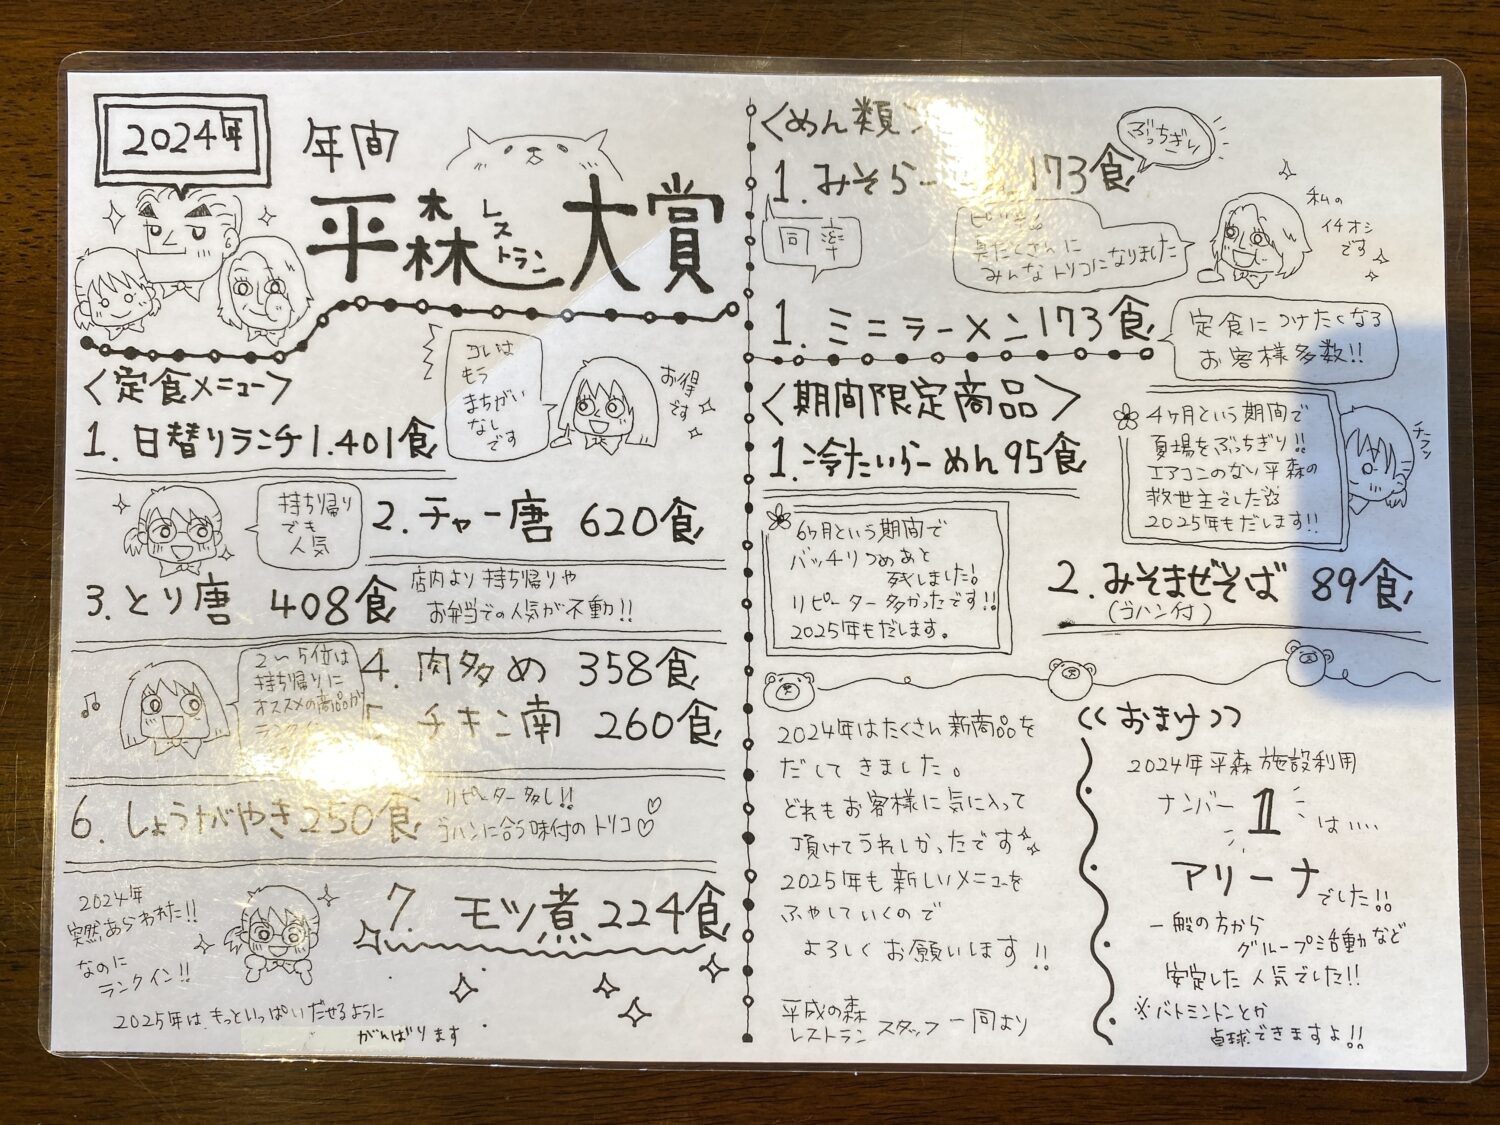 2024年
年間
平森レストラン大賞
〈定食メニュー〉
1. 日替りランチ1.401食
コレは
もう
まちがい
なし
です
お得
です
持ち帰り
でも
人気
2. チャー唐 620食
3. とり唐 408食
店内より持ち帰りや
お弁当での人気が不動!!
2〜5位は
持ち帰りに
オススメの商品が
4. 肉多め 358食
チキン南 260食
6. しょうがやき250食
リピーター多し!!
ゴハンに合う味付のトリコ♡♡
2024年
突然あらわれた!!
なのに
ランクイン!!
7. モツ煮 224食
2025年は、もっといっぱいだせるように
がんばります
〈めん類
1. みそらー 173食
ぶっちぎり
同率
具だくさんに
みんなトリコになりました
私の
イチオシ
です
1. ミニラーメン173食
定食につけたくなる
お客様多数!!
〈期間限定商品〉
1. 冷たいらーめん95食
4ヶ月という期間で
夏場をぶっちぎり!!
エアコンのない平森の
救世主でした
2025年もだします!!
6ヶ月という期間で
バッチリつめあと
残しました!
リピーター多かったです!!
2025年もだします。
2. みそまぜそば 89食
(ゴハン付)
2024年はたくさん新商品を
だしてきました。
どれもお客様に気に入って
頂けてうれしかったです
2025年も新しいメニューを
ふやしていくので
よろしくお願いします!!
平成の森
レストラン スタッフ一同より
《おまけ》
2024年平森施設利用
ナンバー1は…
アリーナでした!!
一般の方から
グループ活動など
安定した人気でした!!
※バトミントンとか
卓球できますよ!!